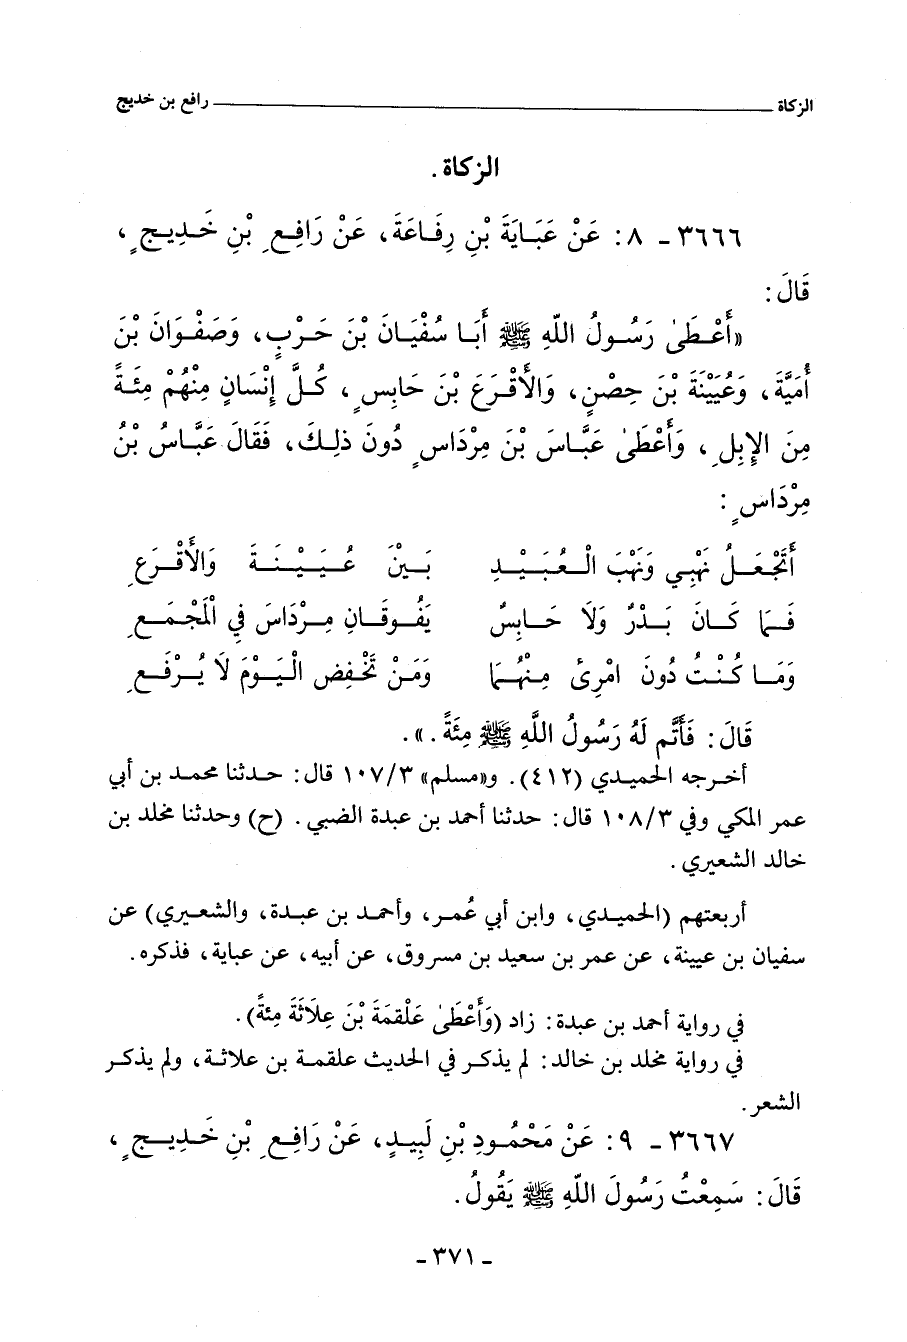 الزكاة ــــــــــــــــــــــــــــــــــــــــ رافع بن خديج
الزكاة .
٣٦٦٦ - ٨ : عَنْ عَبَايَةَ بْنِ رِفَاعَةَ، عَنْ رَافِعِ بْنِ خَدِيجٍ ،
قَالَ :
«أَعْطَىٰ رَسُولُ اللّهِ ﷺ أَبَا سُفْيَانَ بْنَ حَرْبٍ، وَصَفْوَانَ بْنَ
أُمَيَّةَ، وَعُيَيْنَةَ بْنَ حِصْنٍ، وَالأَقْرَعَ بْنَ حَابِسٍ ، كُلَّ إِنْسَانٍ مِنْهُمْ مِئَةً
مِنَ الإِبِلِ ، وَأَعْطَىٰ عَبَّاسَ بْنَ مِرْدَاسٍ دُونَ ذٰلِكَ، فَقَالَ عَبَّاسُ بْنُ
مِرْدَاسٍ :
أَتَجْعَلُ نَهْبِي وَنَهْبَ الْعُبَيْدِ بَيْنَ عُيَيْنَةَ وَالأَقْرَعِ
فَمَا كَانَ بَدْرٌ وَلَا حَابِسٌ يَفُوقَانِ مِرْدَاسَ فِي الْمَجْمَعِ
وَمَا كُنْتُ دُونَ امْرِئٍ مِنْهُمَا وَمَنْ تَخْفِضِ الْيَوْمَ لَا يُرْفَعِ
قَالَ : فَأَتَمَّ لَهُ رَسُولُ اللَّهِ ﷺ مِئَةً . ».
أخرجه الحميدي (٤١٢). و«مسلم» ١٠٧/٣ قال : حدثنا محمد بن أبي
عمر المكي وفي ١٠٨/٣ قال : حدثنا أحمد بن عبدة الضبي . (ح) وحدثنا مخلد بن
خالد الشعيري .
أربعتهم (الحميدي، وابن أبي عُمر، وأحمد بن عبدة، والشعيري) عن
سفيان بن عيينة، عن عمر بن سعيد بن مسروق، عن أبيه، عن عباية، فذكره.
في رواية أحمد بن عبدة : زاد (وَأَعْطَىٰ عَلْقَمَةَ بْنَ عِلَاثَةَ مِئَةً).
في رواية مخلد بن خالد : لم يذكر في الحديث علقمة بن علاثة، ولم يذكر
الشعر.
٣٦٦٧ - ٩ : عَنْ مَحْمُودِ بْنِ لَبِيدٍ، عَنْ رَافِعِ بْنِ خَدِيجٍ ،
قَالَ : سَمِعْتُ رَسُولَ اللّهِ ﷺ يَقُولُ.
- ٣٧١ -